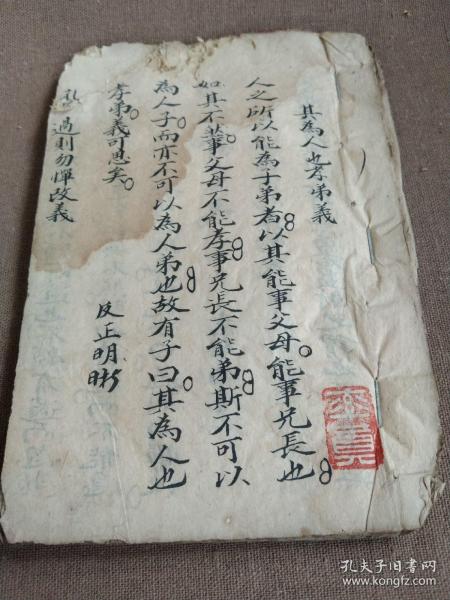 其為人也孝弟義
人之所以能為子弟者以其能事父母能事兄長也
如其不 事父母不能孝事兄長不能弟斯不可以
為人子而亦不可以為人弟也故有子曰其為人也
孝弟義可思矣
反正明
過則勿憚改義
孔夫子旧书网
www.kongfz.com